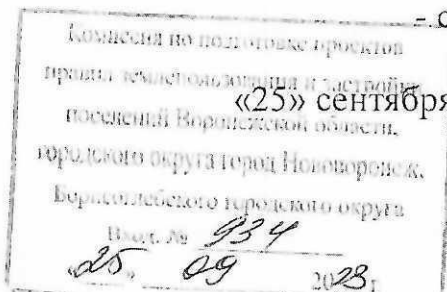 Комиссия по подготовке проектов
правил землепользования и застройки
«25» сентября
поселений Воронежской области,
городского округа город Нововоронеж,
Борисоглебского городского округа
Вход. № 934
«25» 09 2023 г.